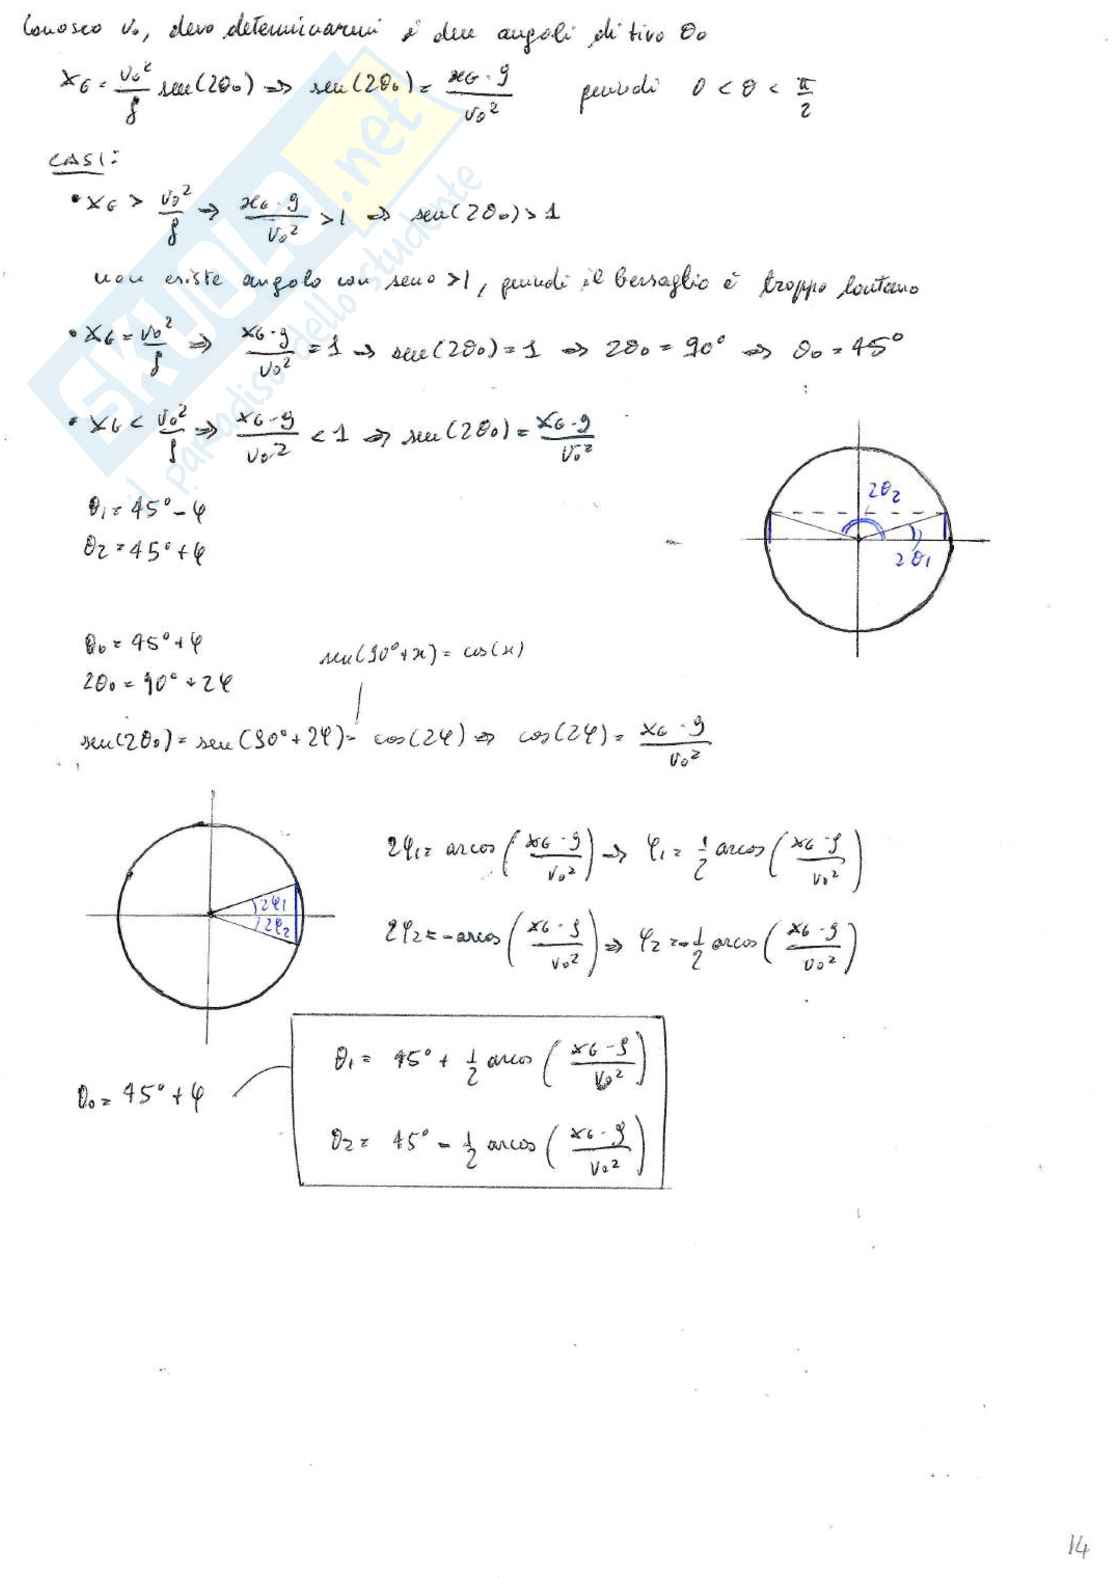 Conosco v₀, devo determinarmi i due angoli di tiro θ₀
x_G = v₀²/g sen(2θ₀) ⇒ sen(2θ₀) = x_G·g/v₀² quindi 0 < θ < π/2
CASI:
• x_G > v₀²/g ⇒ x_G·g/v₀² > 1 ⇒ sen(2θ₀) > 1
non existe angolo con seno >1, quindi il bersaglio è troppo lontano
• x_G = v₀²/g ⇒ x_G·g/v₀² = 1 ⇒ sen(2θ₀) = 1 ⇒ 2θ₀ = 90° ⇒ θ₀ = 45°
• x_G < v₀²/g ⇒ x_G·g/v₀² < 1 ⇒ sen(2θ₀) = x_G·g/v₀²
2θ₂
2θ₁
θ₁ = 45° - φ
θ₂ = 45° + φ
θ₀ = 45° + φ
sen(90°+x) = cos(x)
2θ₀ = 90° + 2φ
sen(2θ₀) = sen(90° + 2φ) = cos(2φ) ⇒ cos(2φ) = x_G·g/v₀²
2φ₁
2φ₂
2φ₁ = arcos(x_G·g/v₀²) ⇒ φ₁ = 1/2 arcos(x_G·g/v₀²)
2φ₂ = -arcos(x_G·g/v₀²) ⇒ φ₂ = -1/2 arcos(x_G·g/v₀²)
θ₀ = 45° + φ
θ₁ = 45° + 1/2 arcos(x_G·g/v₀²)
θ₂ = 45° - 1/2 arcos(x_G·g/v₀²)
14
SKUOLA.net
il paradiso dello studente